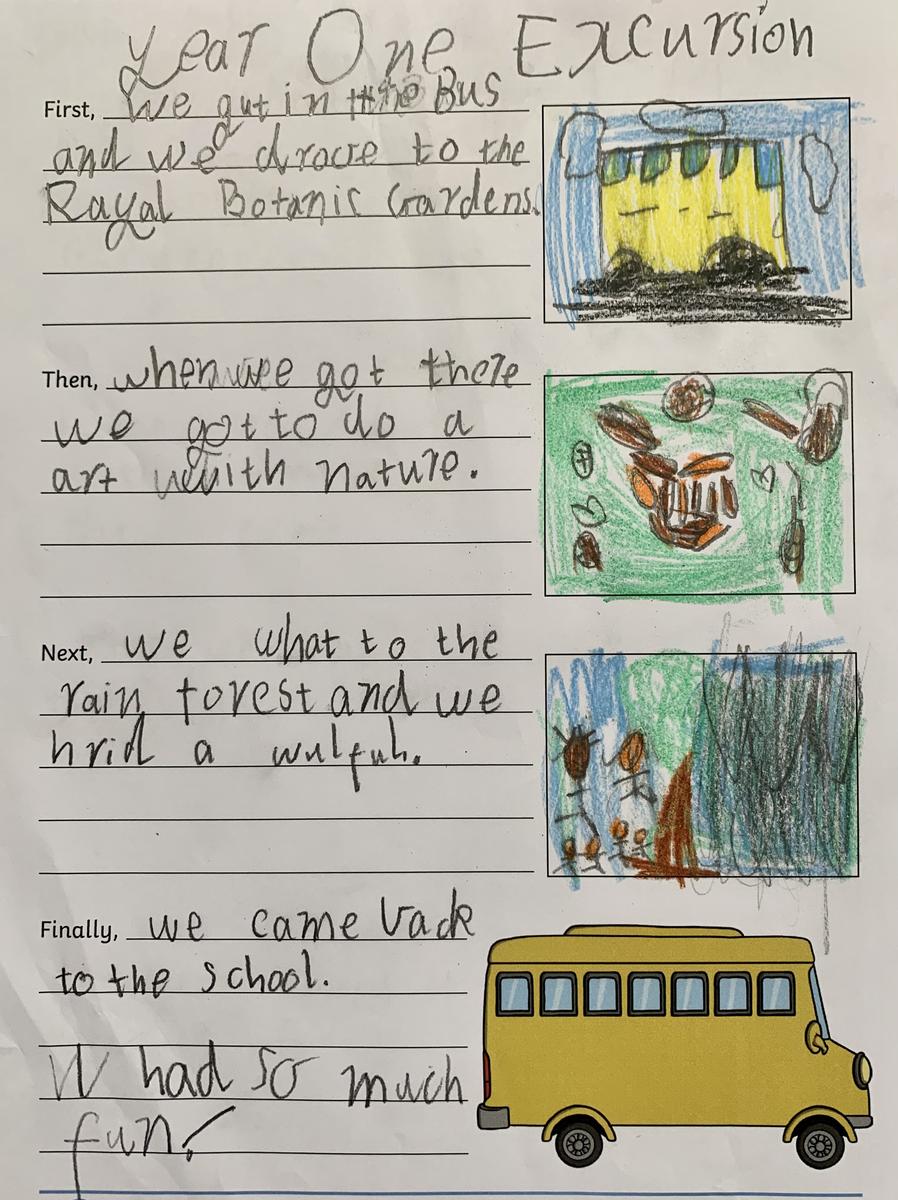 Year One Excursion
First, we gut in the Bus
and we dracve to the
Rayal Botanic Gardens.
Then, when we got there
we got to do a
art with nature.
Next, we what to the
rain forest and we
hrid a wulfuh.
Finally, we came back
to the school.
W had so much
fun!